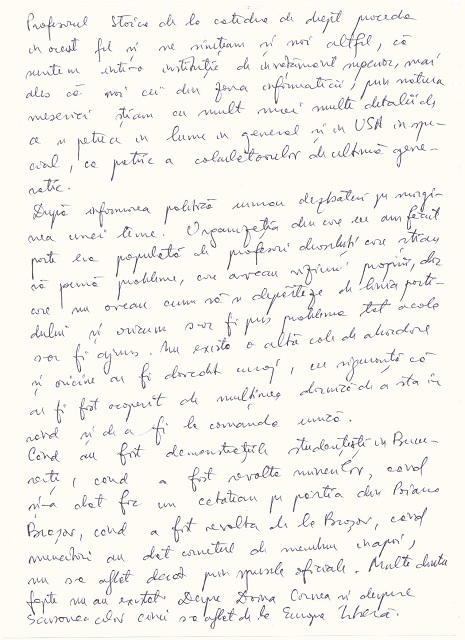 Profesorul Stoica de la catedra de drept proceda
în acest fel și ne simțeam și noi altfel, că
suntem într-o instituție de învățământ superior, mai
ales că noi cei din zona informaticii, prin natura
meseriei știam cu mult mai multe detalii de
ce se petrece în lume în general și în USA în spe-
cial, ca patrie a calculatoarelor de ultimă gene-
rație.
După informarea politică urmau dezbateri pe margi-
nea unei teme. Organizația din care eu am făcut
parte era populată de profesori deosebiți care știau
să pună probleme, care aveau viziuni proprii, dar
care nu aveau cum să se depărteze de linia parti-
dului și oricum s-ar fi pus problema tot acolo
s-ar fi ajuns. Nu exista o altă cale de abordare
și oricine ar fi dovedit curaj, cu siguranță că
ar fi fost acoperit de mulțimea dornică de a sta în
rând și de a fi la comandă unică.
Când au fost demonstrațiile studențești în Bucu-
rești, când a fost revolta minerilor, când
și-a dat foc un cetățean pe pârtia din Poiana
Brașov, când a fost revolta de la Brașov, când
muncitorii au dat carnetul de membru înapoi,
nu s-a aflat decât prin spusele oficiale. Multe dintre
fapte nu au existat. Despre Doina Cornea și despre
scrisoarea celor cinci s-a aflat de la Europa Liberă.